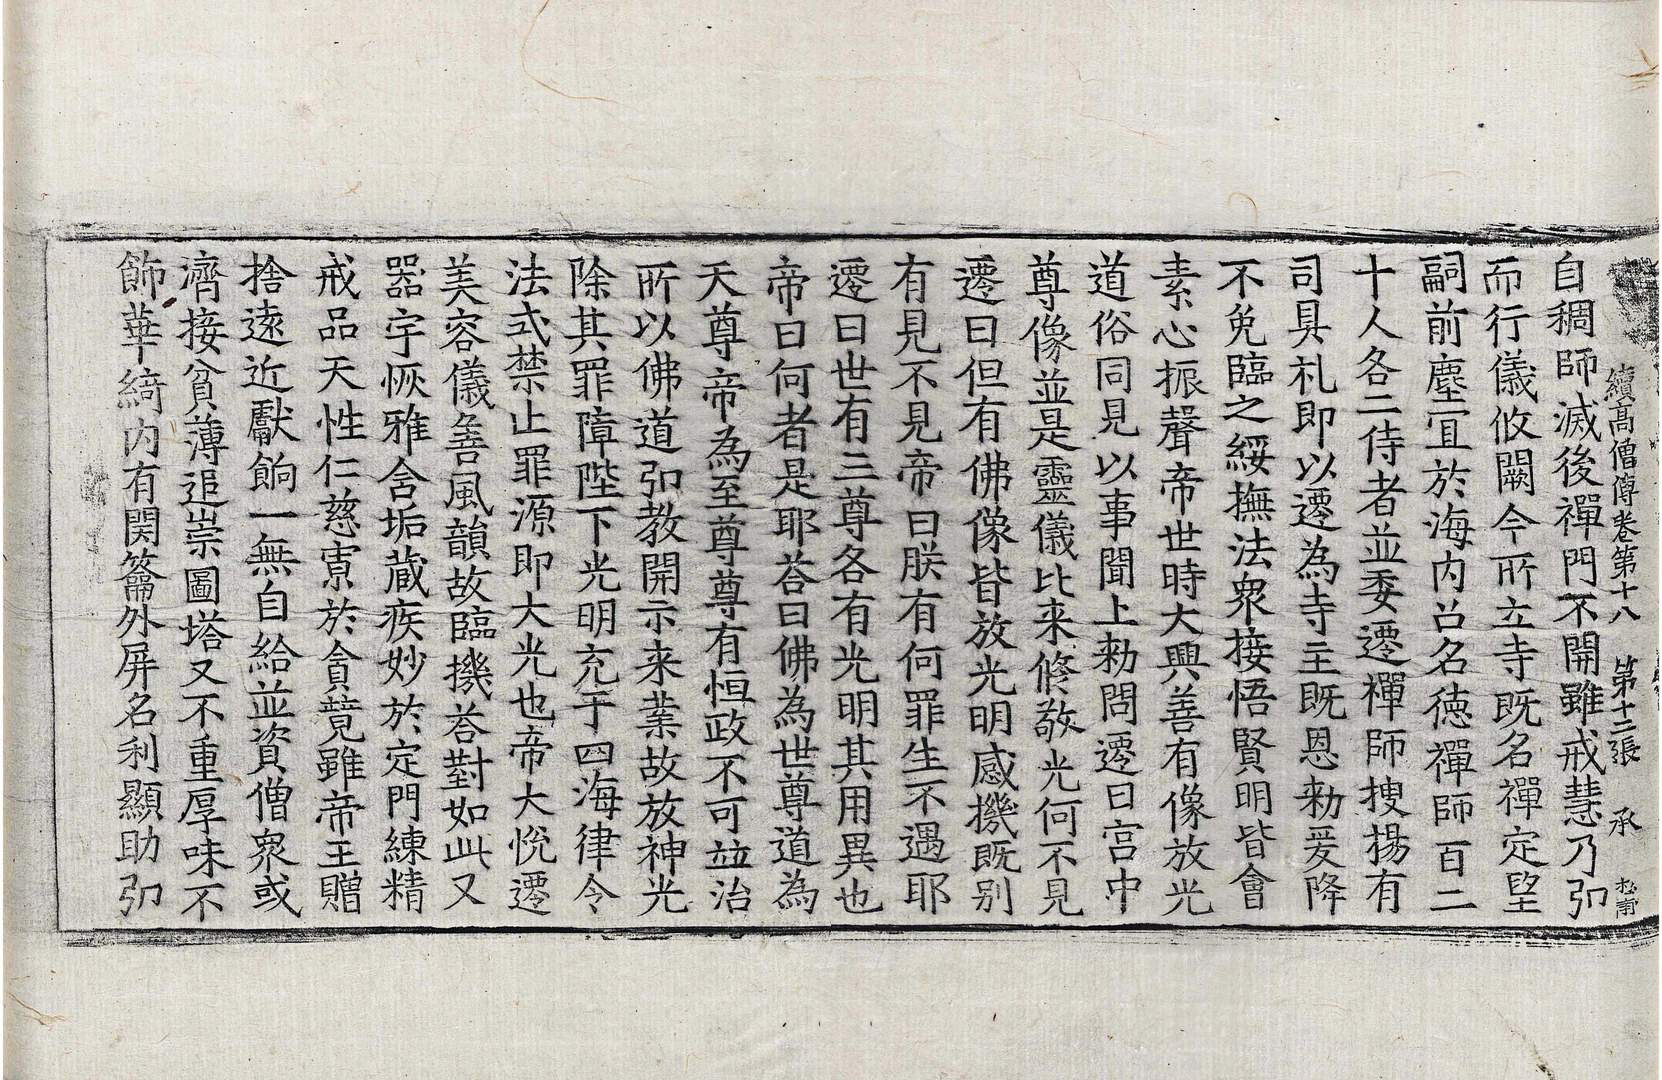 續高僧傳卷第十八　第十二張　承
自稠師滅後禪門不開雖戒慧乃弘
而行儀攸闕今所立寺既名禪定望
嗣前塵宜於海内召名德禪師百二
十人各二侍者並委遷禪師搜揚有
司具札即以遷為寺主既恩勑爰降
不免臨之綏撫法衆接悟賢明皆會
素心振聲帝世時大興善有像放光
道俗同見以事聞上勑問遷曰宮中
尊像並是靈儀比来修敬光何不見
遷曰但有佛像皆放光明感機既別
有見不見帝曰朕有何罪生不遇耶
遷曰世有三尊各有光明其用異也
帝曰何者是耶荅曰佛為世尊道為
天尊帝為至尊尊有恒政不可並治
所以佛道弘教開示来業故放神光
除其罪障陛下光明充于四海律令
法式禁止罪源即大光也帝大悅遷
美容儀善風韻故臨機荅對如此又
器宇恢雅含垢藏疾妙於定門練精
戒品天性仁慈寡於貪競雖帝王贈
捨遠近獻餉一無自給並資僧衆或
濟接貧薄追崇圖塔又不重厚味不
飾華綺内有関籥外屏名利顯助弘